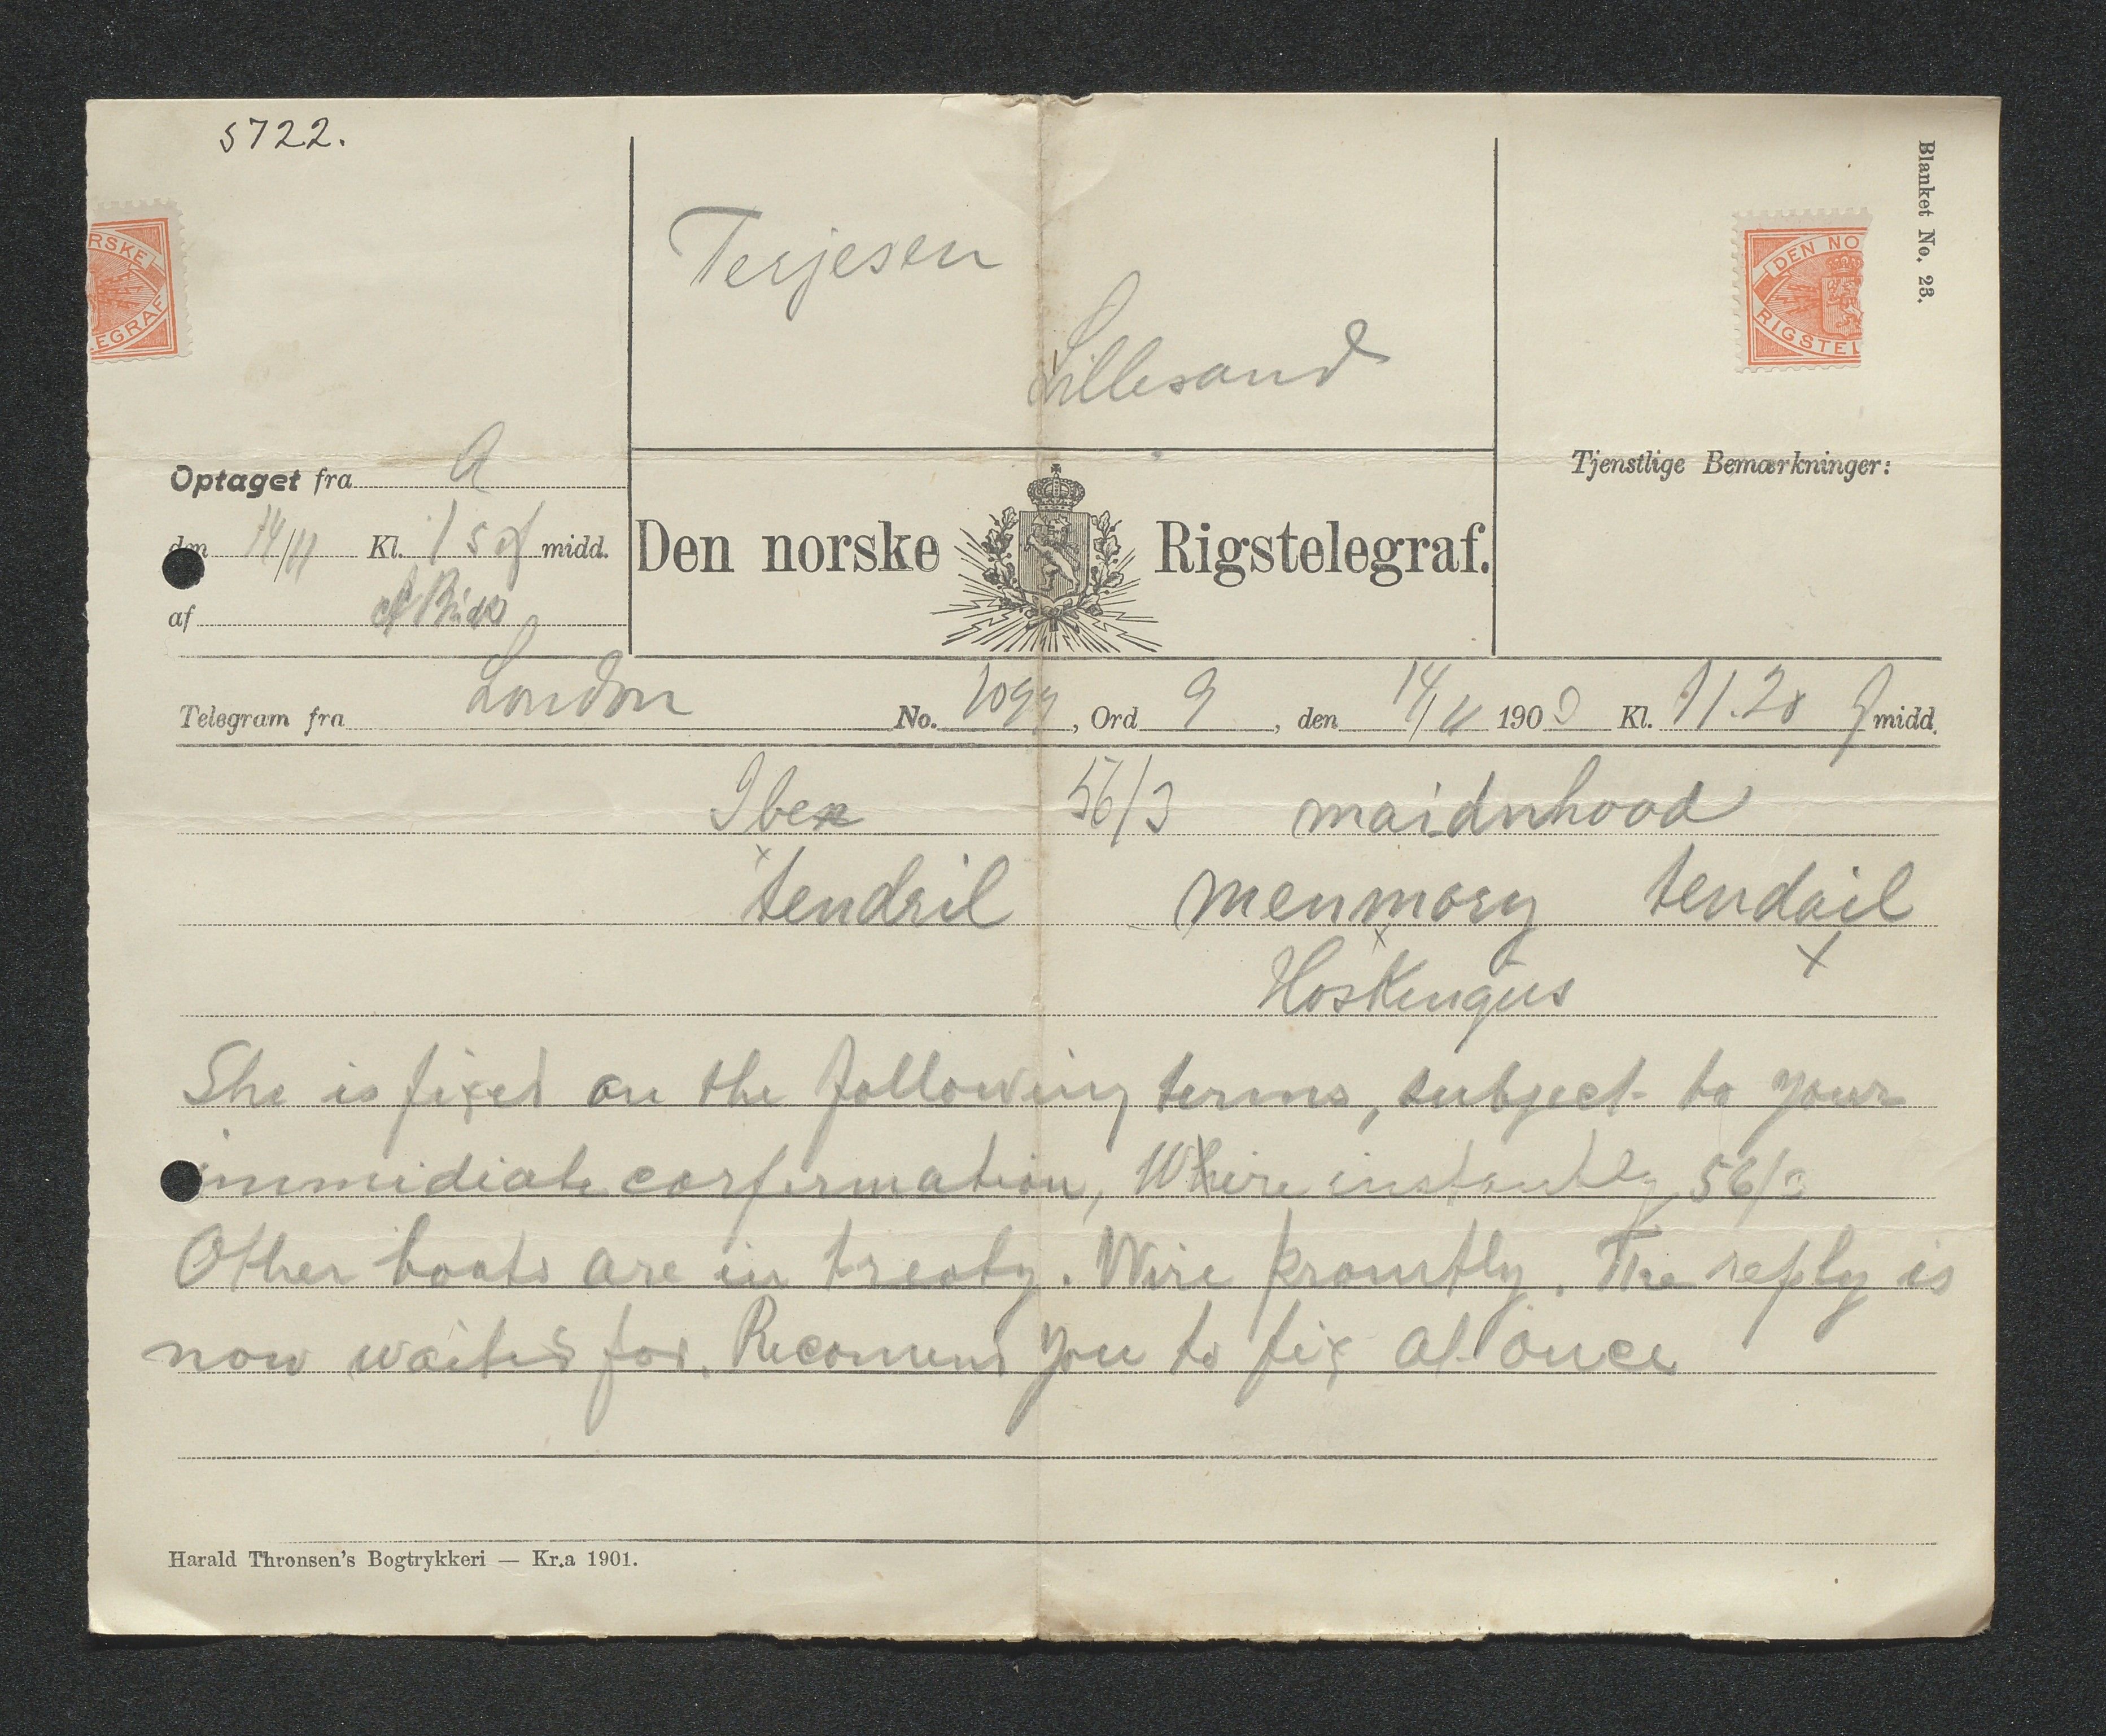 5722.
Blanket No. 23.
RSKE
EGRAF
DEN NO
RIGSTEL
Terjesen
Lillesand
Optaget fra A
den 14/11 Kl. 1 5 ef midd.
af
Den norske Rigstelegraf.
Tjenstlige Bemærkninger:
Telegram fra London No. , Ord 9, den 14/11 190 Kl. 11.20 f midd.
Ibex 56/3 maidnhood
tendril menmory tendail
Hoskengus
She is fixed on the following terms, subject to your
immidiate corfirmation, Wire instantly 56/3
Other boats are in treaty. Wire promtly. The reply is
now waited for. Recomend you to fix at once
Harald Thronsen's Bogtrykkeri — Kr.a 1901.